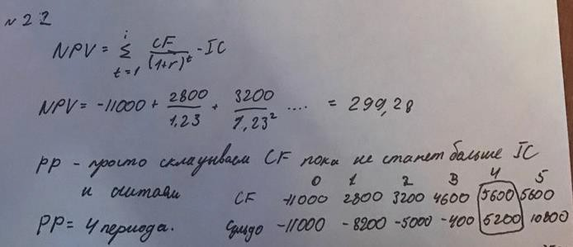 N 22
NPV = Σ t=1 i CF/(1+r)^t - IC
NPV = -11000 + 2800/1,23 + 3200/1,23² .... = 299,28
PP - просто складываем CF пока не станет больше IC
0 1 2 3 4 5
и считаем CF -11000 2800 3200 4600 5600 5600
PP = 4 периода. -11000 -8200 -5000 -400 5200 10800